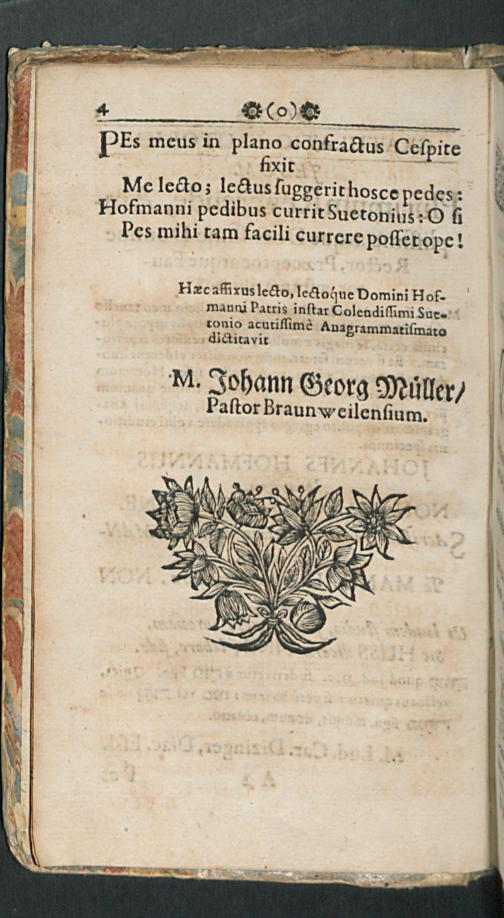 4 (o)
PEs meus in plano confractus Ceſpite
fixit
Me lecto; lectus ſuggerit hosce pedes:
Hofmanni pedibus currit Suetonius: O ſi
Pes mihi tam facili currere poſſet ope!
Hæc affixus lecto, lectoq́ue Domini Hof-
manni Patris inſtar Colendiſſimi Sue-
tonio acutiſſimè Anagrammatiſmato
dictitavit
M. Johann Georg Müller/
Paſtor Braunweilenſium.